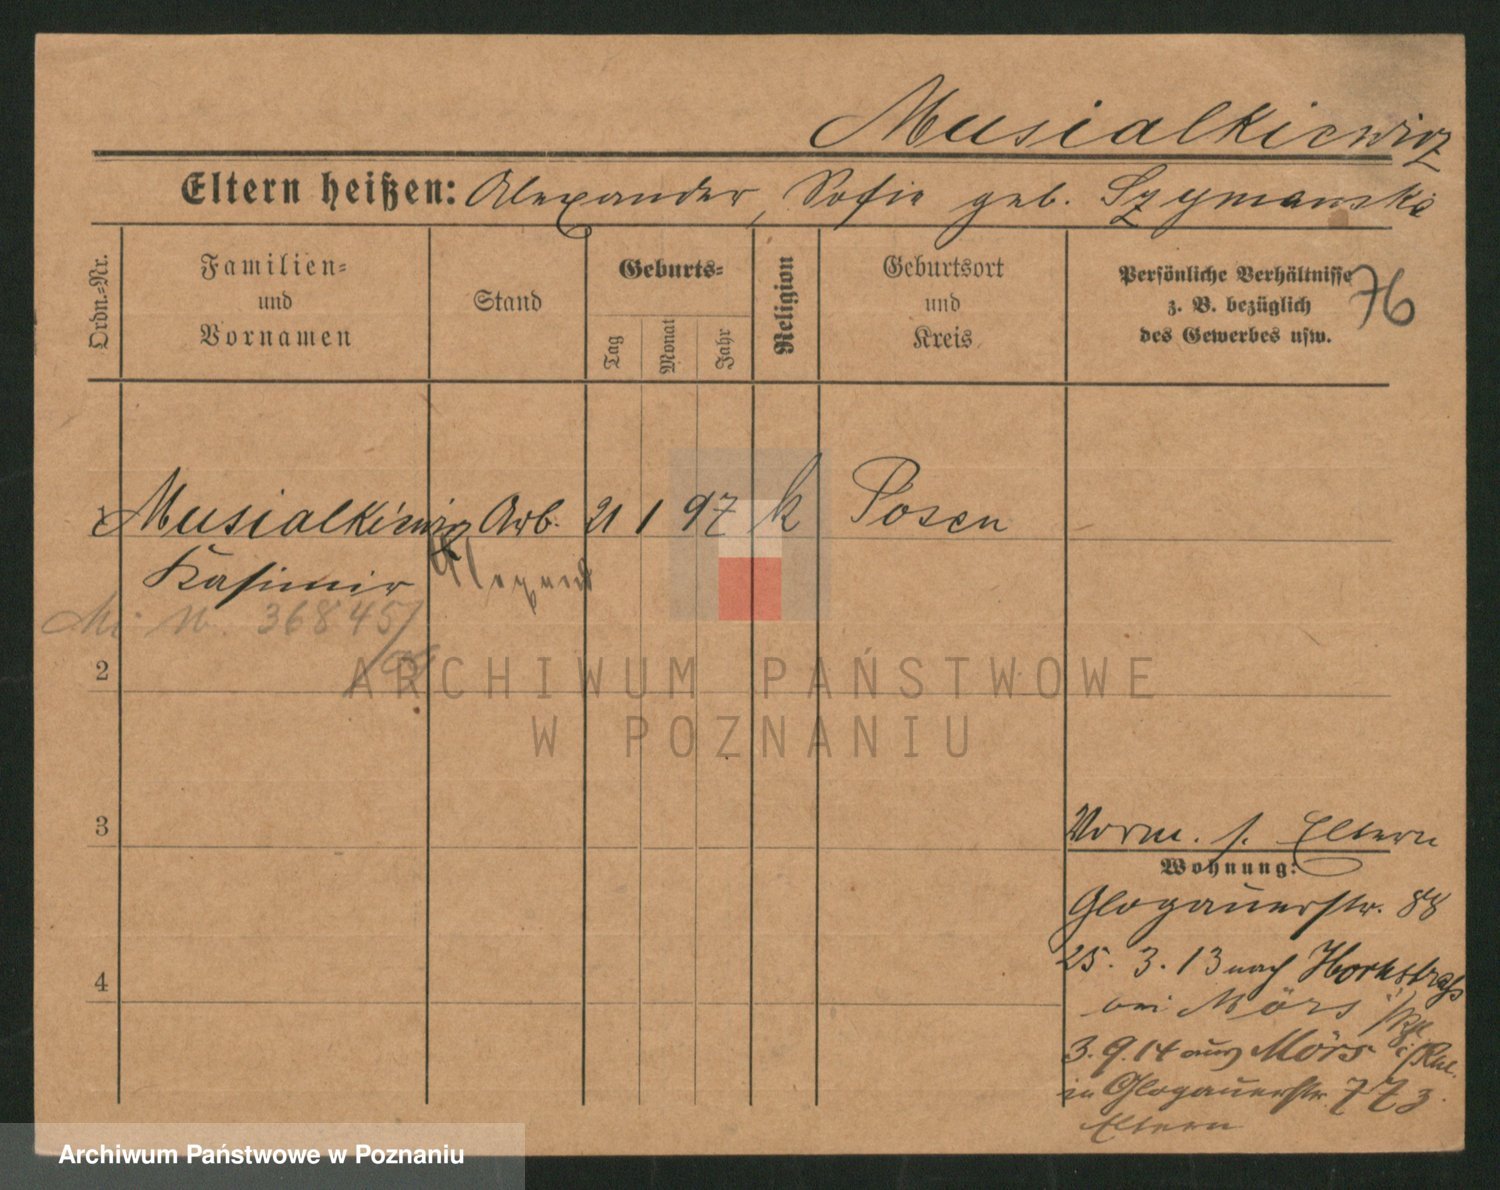 Musialkiewicz
Eltern heißen: Alexander, Sofie geb. Szymanski
Ordn.-Nr.
Familien-
und
Vornamen
Stand
Geburts-
Tag
Monat
Jahr
Religion
Geburtsort
und
Kreis
Persönliche Verhältnisse
z. B. bezüglich
des Gewerbes usw.
76
1 Musialkiewicz Arb. 21 1 97 k Posen
Kasimir
36845/
2
3
4
Vorm. s. Eltern
Wohnung:
Glogauerstr. 88
25. 3. 13 nach
Mörs
3. 9. 14 aus Mörs
in Glogauerstr. 77 z.
Eltern
ARCHIWUM PAŃSTWOWE
W POZNANIU
Archiwum Państwowe w Poznaniu